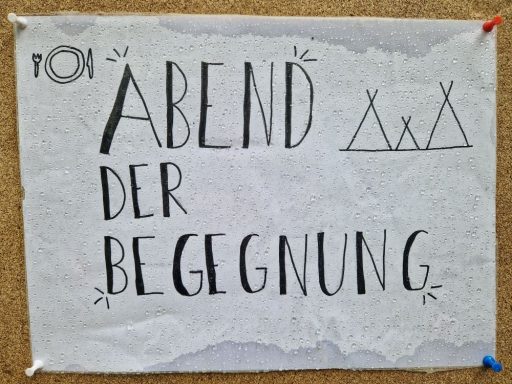 ABEND
DER
BEGEGNUNG